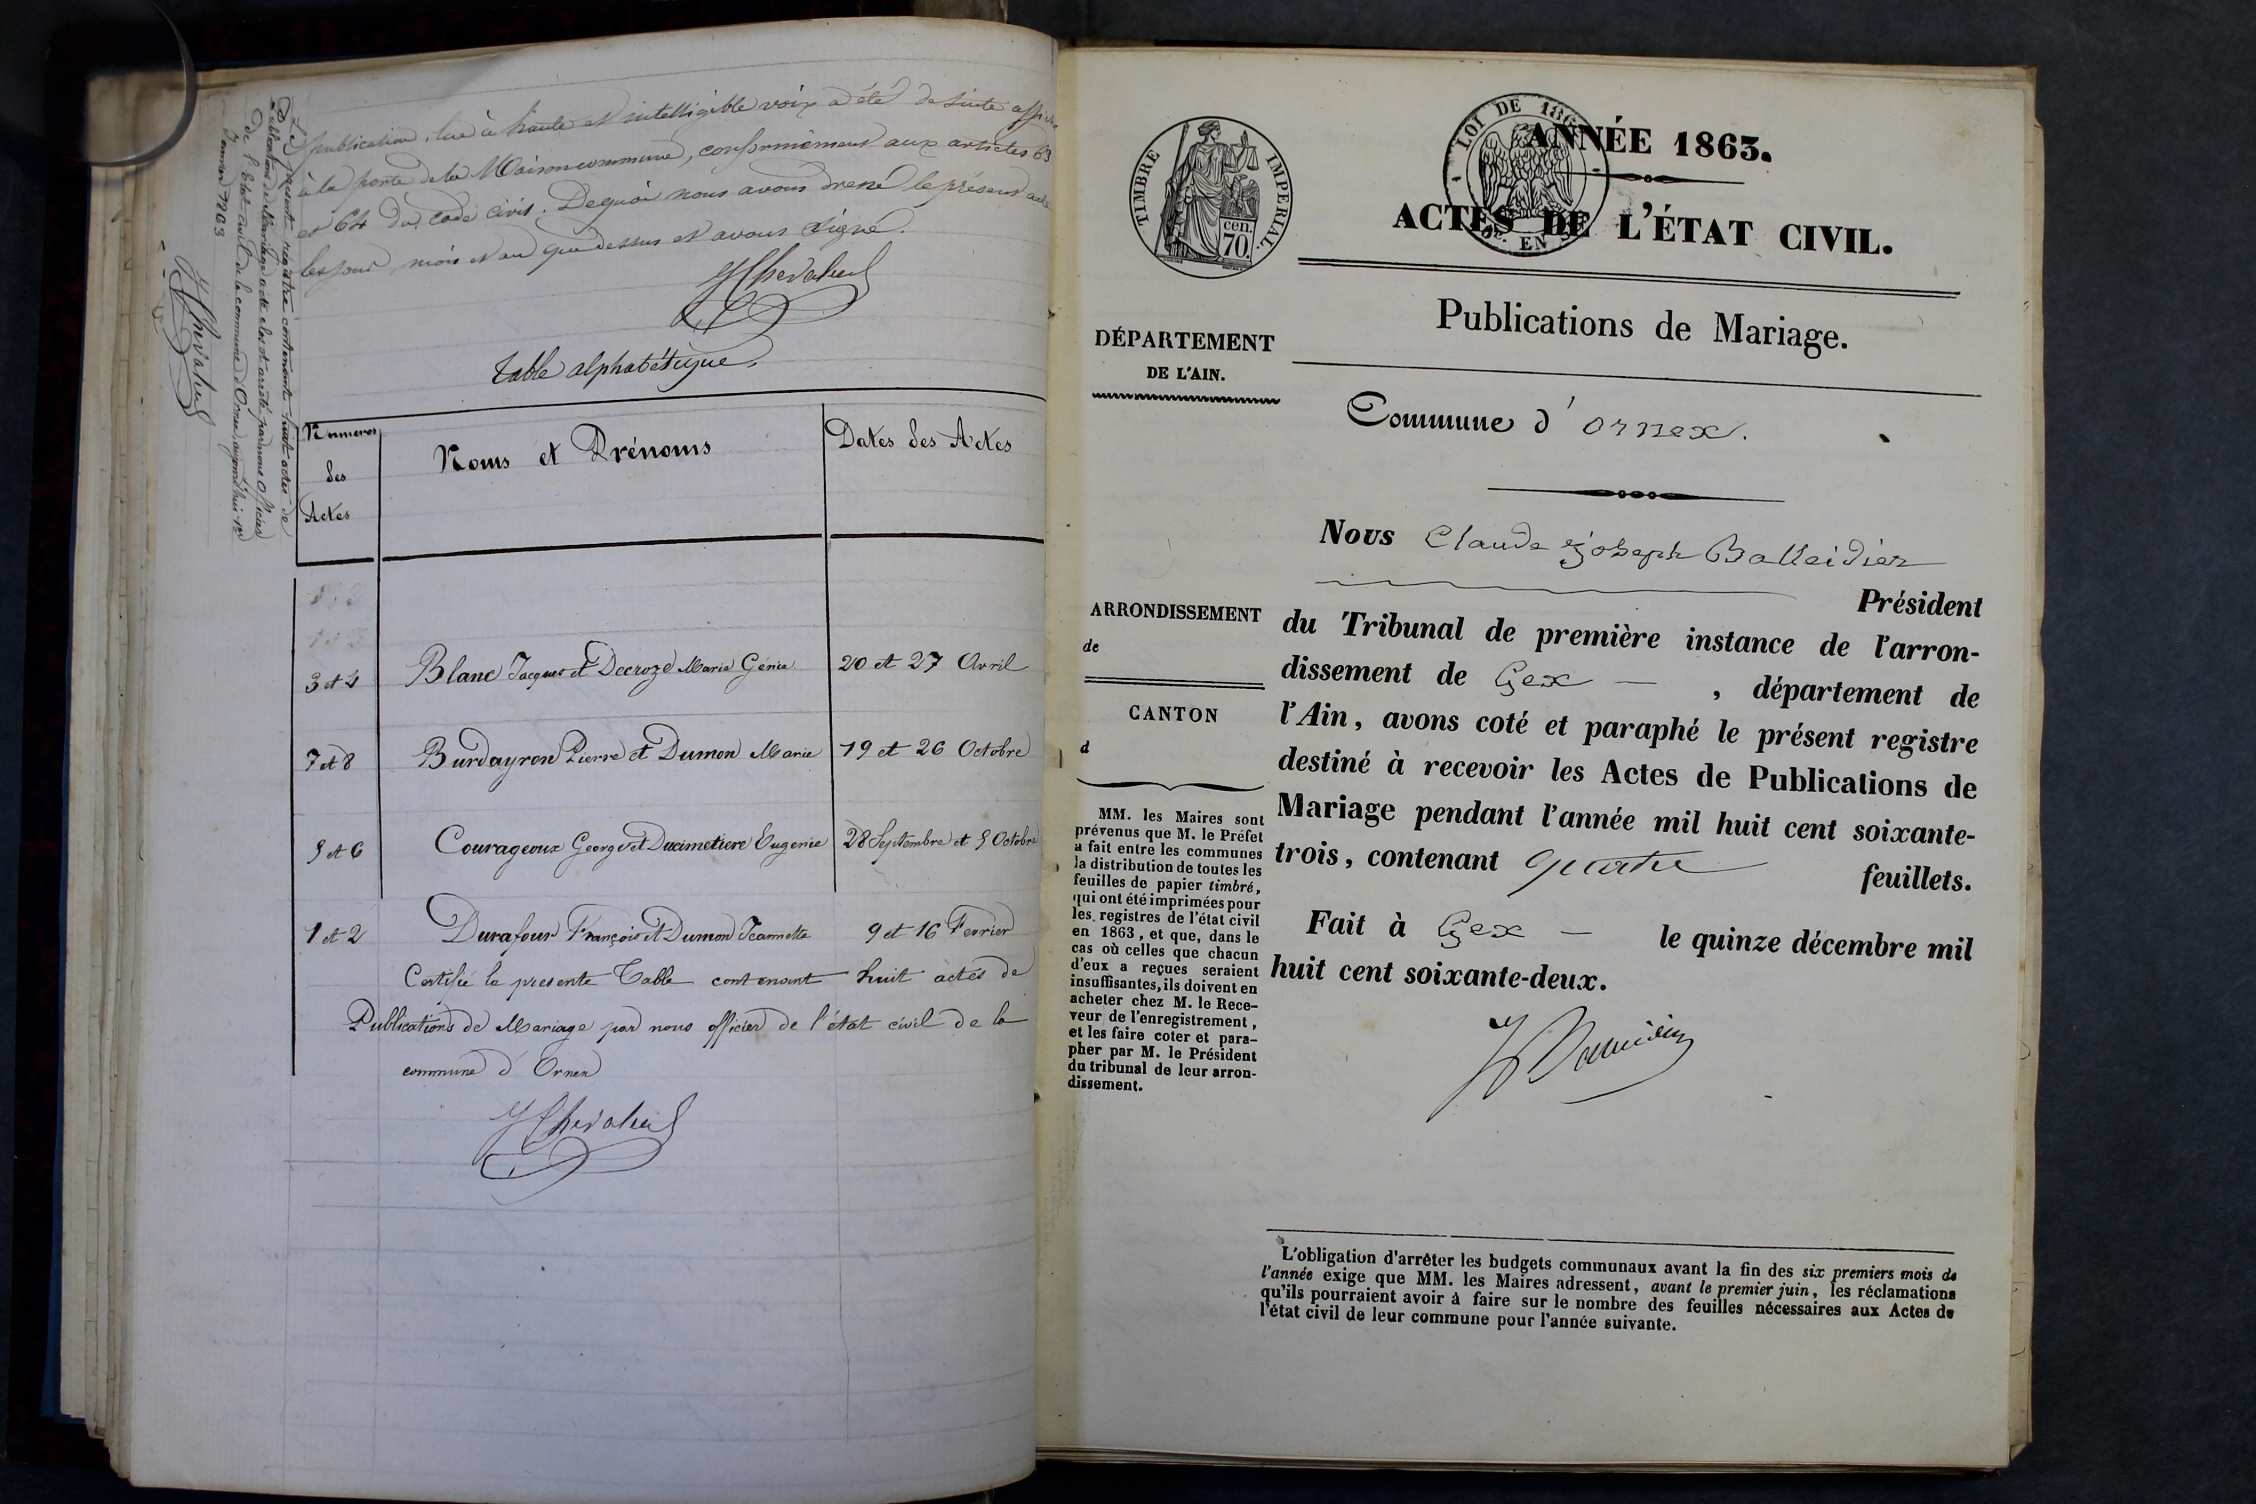 publication, lue à haute et intelligible voix a été de suite affichée
à la porte de la Maison commune, conformément aux articles 63
et 64 du code civil. De quoi nous avons dressé le présent acte
les jour mois et an que dessus et avons signé.
JChevalier
Le présent régistre contenant huit actes de
Publications de Mariage a été clos et arrêté par nous officier
de l'état civil de la commune d'Ornex, aujourd'hui 1er
Janvier 1863
JChevalier
Table alphabétique.
Numeros des Actes
Noms et Prénoms
Dates des Actes
3 et 4 Blanc Jacques et Decroze Marie Génie 20 et 27 Avril
7 et 8 Burdayron Pierre et Dumon Marie 19 et 26 Octobre
5 et 6 Courageoux George et Ducimetiere Eugenie 28 Septembre et 5 Octobre
1 et 2 Durafour François et Dumon Jeannette 9 et 16 Fevrier
Certifié la presente Table contenant huit actes de
Publications de Mariage par nous officier de l'état civil de la
commune d'Ornex
JChevalier
TIMBRE IMPERIAL.
cen.
70.
LOI DE 186
EN SUS
ANNÉE 1863.
ACTES DE L'ÉTAT CIVIL.
Publications de Mariage.
DÉPARTEMENT
DE L'AIN.
Commune d'Ornex.
ARRONDISSEMENT
de
CANTON
d
MM. les Maires sont
prévenus que M. le Préfet
a fait entre les communes
la distribution de toutes les
feuilles de papier timbré,
qui ont été imprimées pour
les registres de l'état civil
en 1863, et que, dans le
cas où celles que chacun
d'eux a reçues seraient
insuffisantes, ils doivent en
acheter chez M. le Rece-
veur de l'enregistrement,
et les faire coter et para-
pher par M. le Président
du tribunal de leur arron-
dissement.
Nous Claude Joseph Balleidier
Président
du Tribunal de première instance de l'arron-
dissement de Gex — , département de
l'Ain, avons coté et paraphé le présent registre
destiné à recevoir les Actes de Publications de
Mariage pendant l'année mil huit cent soixante-
trois, contenant quatre feuillets.
Fait à Gex — le quinze décembre mil
huit cent soixante-deux.
L'obligation d'arrêter les budgets communaux avant la fin des six premiers mois de
l'année exige que MM. les Maires adressent, avant le premier juin, les réclamations
qu'ils pourraient avoir à faire sur le nombre des feuilles nécessaires aux Actes de
l'état civil de leur commune pour l'année suivante.